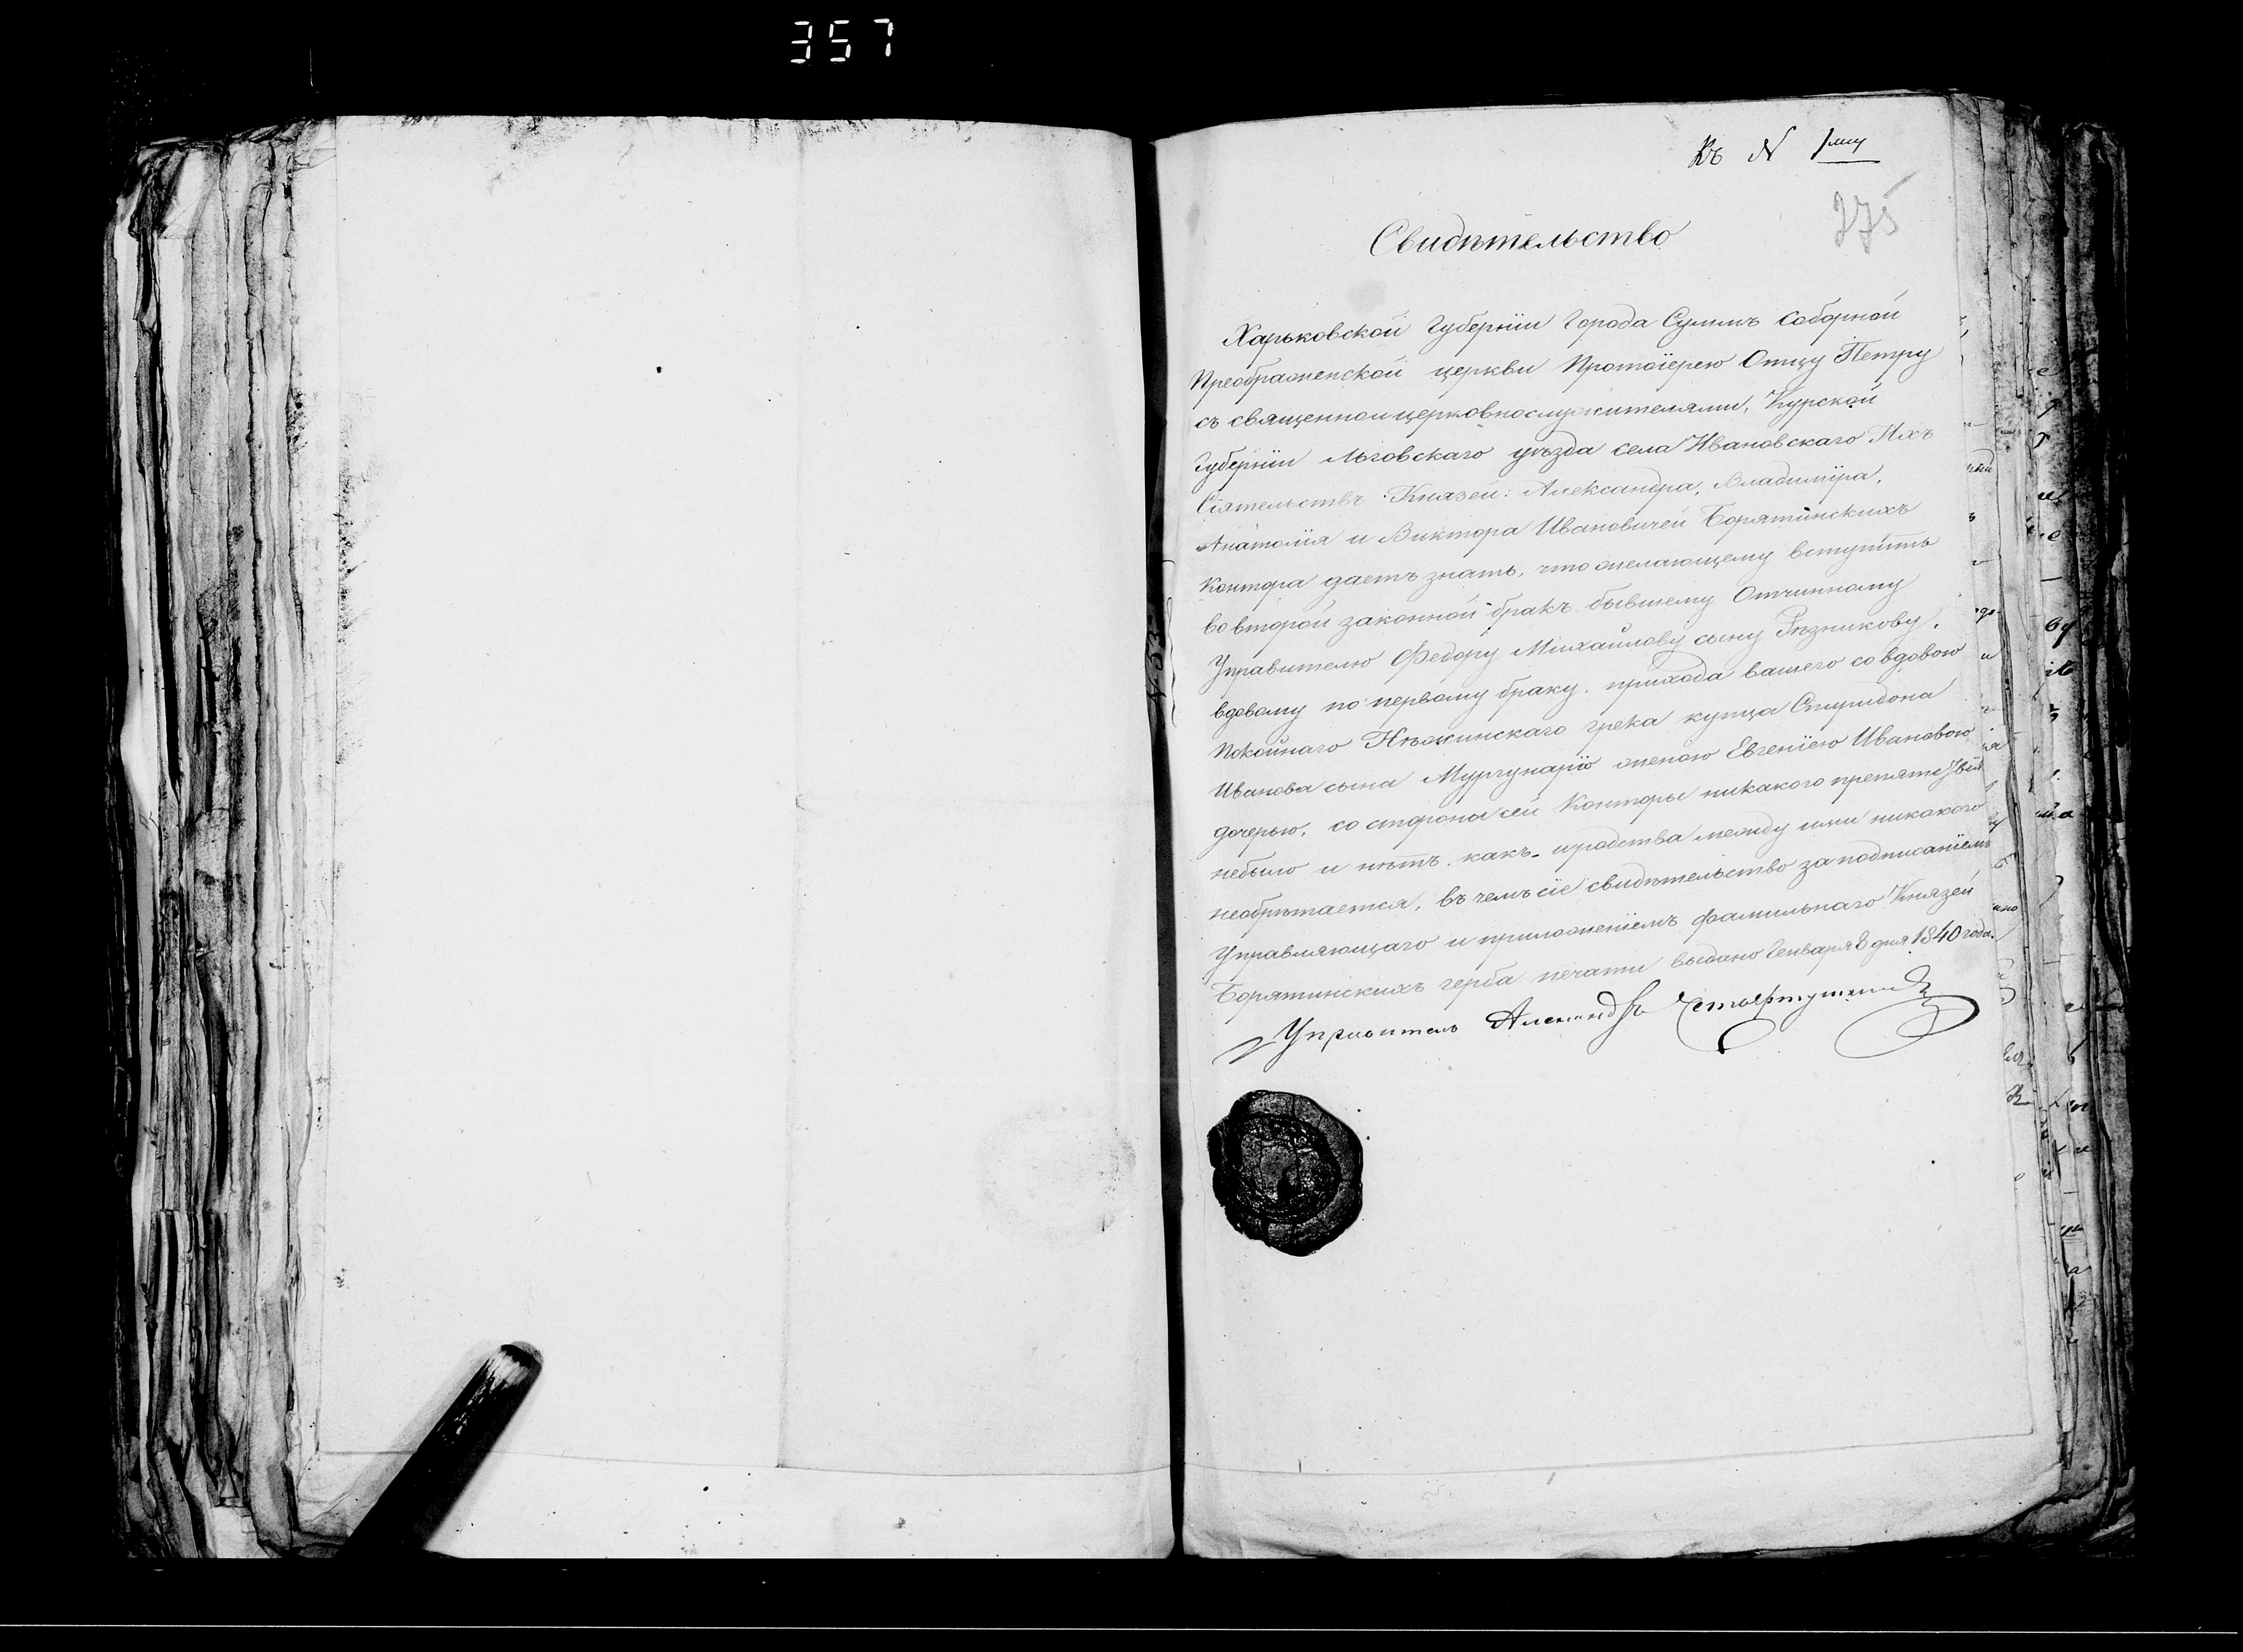 357
Къ N 1му
375
Свидѣтельство
Харьковской Губернïи Города Суммъ Соборной
Преображенской церкви Протоïерею Отцу Петру
съ священноицерковнослужителями, Курской
Губернïи Льговскаго уѣзда села Ивановскаго Ихъ
Сïятельствъ Князей: Александра, Владимïра,
Анатолïя и Виктора Ивановичей Борятинскихъ
Контора даетъ знать, что желающему вступить
во второй законной бракъ бывшему Отчинному
Управителю Федору Михайлову сыну Рѣзникову,
вдовому по первому браку, прихода вашего со вдовою
Покойнаго Нѣжинскаго грека купца Спиридона
Иванова сына женою Евгенïею Ивановою
дочерью, со стороны сей Конторы никакого препятствïя
небыло и нѣтъ, какъ иродства между ими никакого
необрѣтается, въ чемъ сïе свидѣтельство заподписанïемъ
Управляющаго и приложенïемъ фамильнаго Князей
Борятинскихъ герба печати выдано Генваря 8 дня 1840 года.
Управитель Александръ